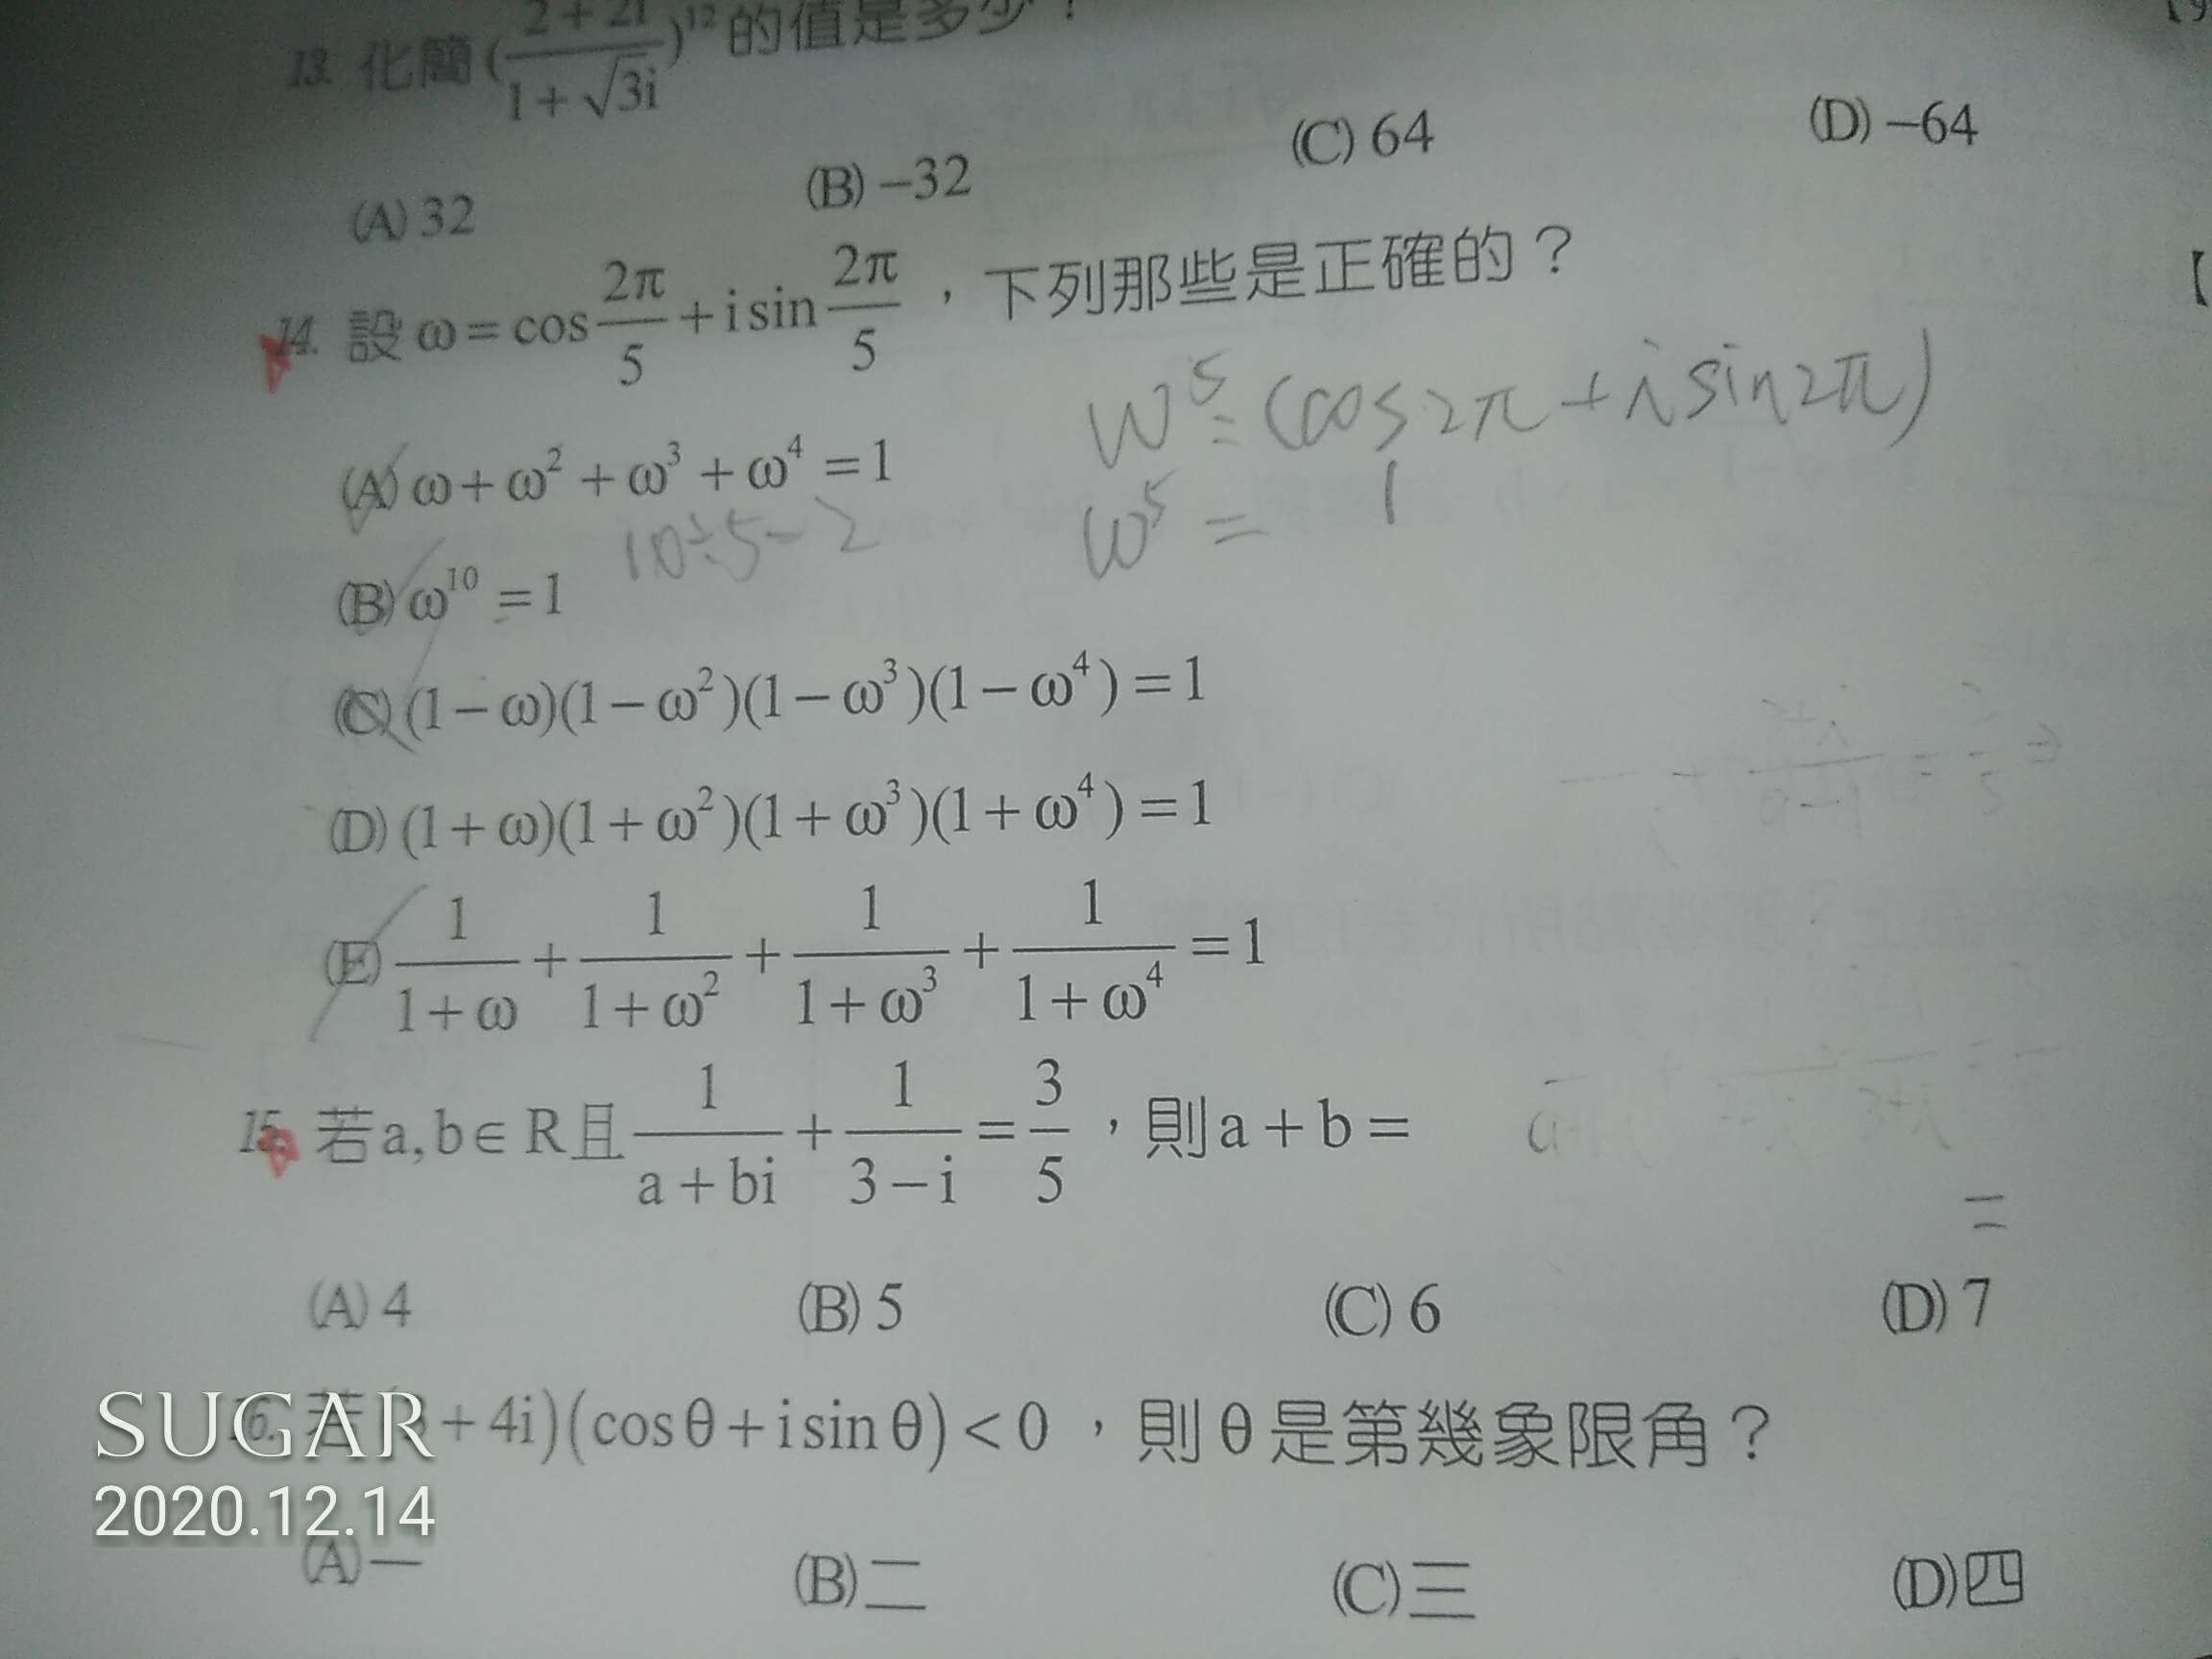 13. 化簡(\frac{2+2i}{1+√3i})^12的值是多少？
(A) 32 (B) −32 (C) 64 (D) −64
14. 設 ω = cos\frac{2π}{5} + i sin\frac{2π}{5}，下列那些是正確的？
W^5 = (cos 2π + i sin 2π)
(A) ω + ω^2 + ω^3 + ω^4 = 1
ω^5 = 1
10÷5=2
(B) ω^10 = 1
(C) (1−ω)(1−ω^2)(1−ω^3)(1−ω^4) = 1
(D) (1+ω)(1+ω^2)(1+ω^3)(1+ω^4) = 1
(E) \frac{1}{1+ω} + \frac{1}{1+ω^2} + \frac{1}{1+ω^3} + \frac{1}{1+ω^4} = 1
15. 若 a, b ∈ R 且 \frac{1}{a+bi} + \frac{1}{3−i} = \frac{3}{5}，則 a + b =
=
(A) 4 (B) 5 (C) 6 (D) 7
16. 若 + 4i)(cosθ + i sinθ) < 0，則 θ 是第幾象限角？
SUGAR
2020.12.14
(A) 一 (B) 二 (C) 三 (D) 四